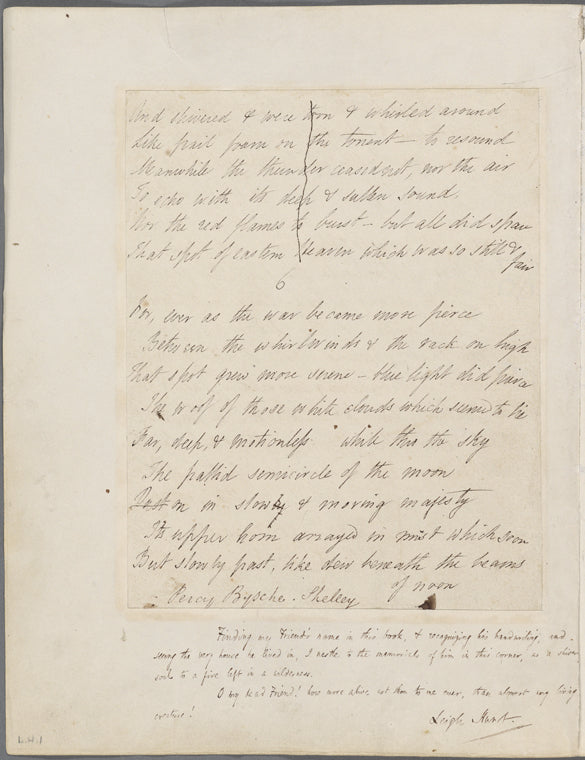 And shivered & were torn & whirled around
Like frail foam on the torrent — to resound
Meanwhile the thunder ceased not, nor the air
To echo with its deep & sullen sound,
Nor the red flames to burst — but all did spare
That spot of eastern heaven which was so still &
fair
6
For, ever as the war became more fierce
Between the whirlwinds & the rack on high
That spot grew more serene — blue light did pierce
The woof of those white clouds which seemed to lie
Far, deep, & motionless: while thro the sky
The pallid semicircle of the moon
Past on in slow & moving majesty
Its upper horn arrayed in mist which soon
But slowly past, like dew beneath the beams
of noon
Percy Bysshe. Shelley
Finding my Friend's name in this book, & recognizing his handwriting, and
seeing the very house he lived in, I nestle to the memorials of him in this corner, as a shivering
soul to a fire left in a wilderness.
O my dead Friend! how more alive art thou to me ever, than almost any living
creature!
Leigh Hunt.
L.H.1